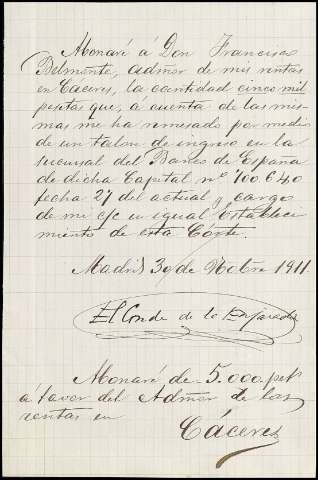 Abonaré á Don Francisco
Belmonte, admor de mis rentas
en Cáceres, la cantidad cinco mil
pesetas que, a cuenta de las mis-
mas me ha remesado por medio
de un talon de ingreso en la
sucursal del Banco de España
de dicha Capital nº 700.640
fecha 27 del actual y cargo
de mi c/c en igual Estableci
miento de esta Córte.
Madrid 30 de 1911.
El Conde de la
Abonaré de 5.000 pts
á favor del Admor de las
rentas en
Cáceres